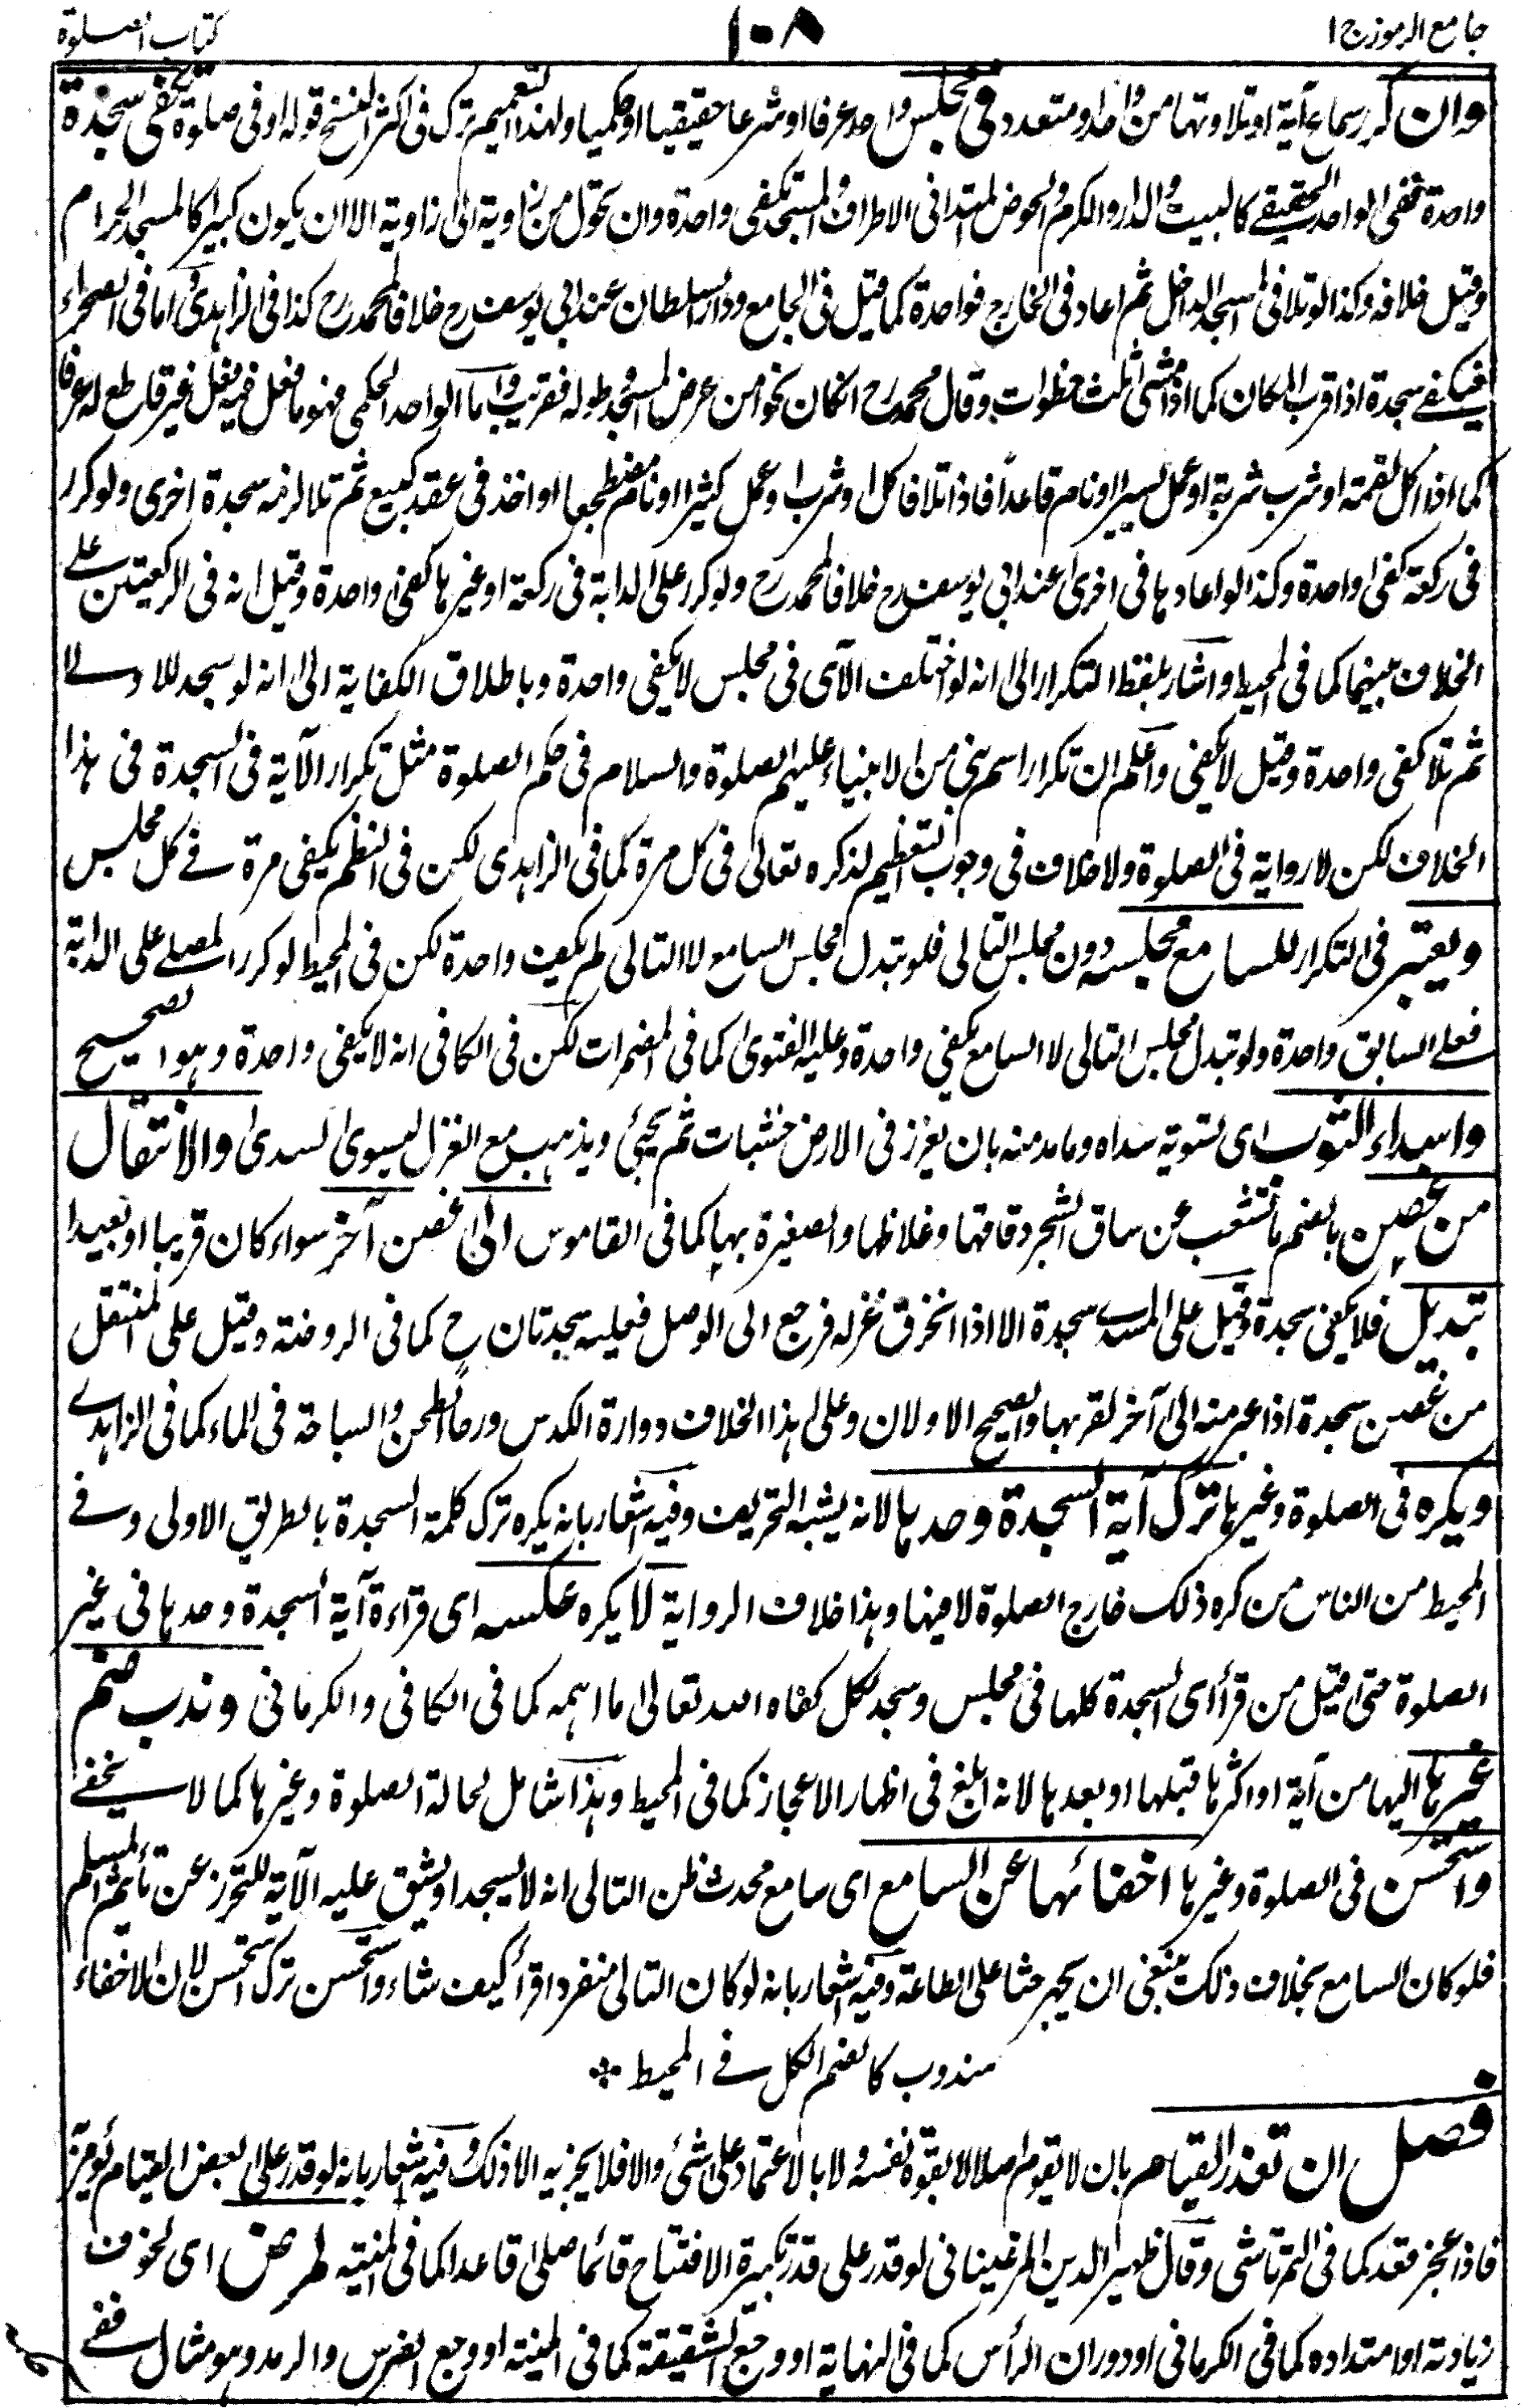 جامع الرموز ج ١
١٠٨
كتاب الصلوة
وان كرر سماع آية او تلاوتها من واحد او متعدد في مجلس واحد عرفا او شرعا حقيقيا او حكميا ولهذا التعميم ترك في اكثر النسخ قوله او في صلوة تكفي سجدة
واحدة ففي الواحد الحقيقي كالبيت والدار والكرم والحوض المتداني الاطراف والمسجد تكفي واحدة وان تحول من زاوية الى زاوية الا ان يكون كبيرا كالمسجد الحرام
وقيل خلافه وكذا لو تلا في المسجد الداخل ثم اعاد في الخارج فواحدة كما قيل في الجامع ودار السلطان عند ابي يوسف رح خلافا لمحمد رح كذا في الزاهدي اما في الصحراء
فيكفي سجدة اذا قرب المكان كما اذا مشى ثلث خطوات وقال محمد رح ان كان نحوا من عرض المسجد وطوله فقريب واما الواحد الحكمي فهو ما فعل فيه فعل غير قاطع له عرفا
كما اذا اكل لقمة او شرب شربة او عمل يسيرا او نام قاعدا فاذا تلا فاكل او شرب او عمل كثيرا او نام مضطجعا او اخذ في عقد كبيع ثم تلا لزمه سجدة اخرى ولو كرر
في ركعة كفى واحدة وكذا لو اعادها في اخرى عند ابي يوسف رح خلافا لمحمد رح ولو كرر على الدابة في ركعة او غيرها كفى واحدة وقيل انه في الركعتين على
الخلاف بينهما كما في المحيط واشار بلفظ التكرار الى انه لو اختلف الآي في مجلس لا يكفي واحدة وباطلاق الكفاية الى انه لو سجد للاولى
ثم تلا كفى واحدة وقيل لا يكفي واعلم ان تكرار اسم نبي من الانبياء عليهم الصلوة والسلام في حكم الصلوة مثل تكرار الآية في السجدة في هذا
الخلاف لكن لا رواية في الصلوة ولا خلاف في وجوب التعظيم لذكره تعالى في كل مرة كما في الزاهدي لكن في النظم يكفي مرة في كل مجلس
ويعتبر في التكرار للسامع مجلسه دون مجلس التالي فلو تبدل مجلس السامع لا التالي لم يكف واحدة لكن في المحيط لو كرر المصلي على الدابة
فعلى السابق واحدة ولو تبدل مجلس التالي لا السامع يكفي واحدة وعليه الفتوى كما في المضمرات لكن في الكافي انه لا يكفي واحدة وهو الصحيح
واسداء الثوب اى تسوية سداه وما مد منه بان يغرز في الارض خشبات ثم يجيئ ويذهب مع الغزل ليسوى السدى والانتقال
من غصن بالضم ما تشعب عن ساق الشجر دقاقها وغلاظها والصغيرة بهاء كما في القاموس الى غصن آخر سواء كان قريبا او بعيدا
تبديل فلا يكفي سجدة وقيل على المسدي سجدة الا اذا انخرق غزله فرجع الى الوصل فعليه سجدتان ح كما في الروضة وقيل على المنتقل
من غصن سجدة اذا عبر منه الى آخر لقربها والصحيح الاولان وعلى هذا الخلاف دوارة الكدس ورحا الطحن والسباحة في الماء كما في الزاهدي
ويكره في الصلوة وغيرها ترك آية السجدة وحدها لانه يشبه التحريف وفيه اشعار بانه يكره ترك كلمة السجدة بالطريق الاولى وفي
المحيط من الناس من كره ذلك خارج الصلوة لا فيها وهذا خلاف الرواية لا يكره عكسه اى قراءة آية السجدة وحدها في غير
الصلوة حتى قيل من قرأ آى السجدة كلها في مجلس وسجد لكل كفاه الله تعالى ما اهمه كما في الكافي والكرماني وندب ضم
غيرها اليها من آية او اكثر ما قبلها او بعدها لانه ابلغ في اظهار الاعجاز كما في المحيط وهذا شامل لحالة الصلوة وغيرها كما لا يخفى
واستحسن في الصلوة وغيرها اخفائها عن السامع اى سامع محدث ظن التالي انه لا يسجد او يشق عليه الآية للتحرز عن تأثيم المسلم
فلو كان السامع بخلاف ذلك ينبغي ان يجهر حثا على الطاعة وفيه اشعار بانه لو كان التالي منفردا قرأ كيف شاء واستحسن ترك استحسن لان الاخفاء
مندوب كالضم الكل في المحيط *
فصل ان تعذر القيام بان لا يقوم اصلا لا بقوة نفسه ولا بالاعتماد على شئ والا فلا يجزيه الا ذلك وفيه اشعار بانه لو قدر على بعض القيام يؤمر
فاذا عجز قعد كما في التمرتاشي وقال ظهير الدين المرغيناني لو قدر على قدر تكبيرة الافتتاح قائما صلى قاعدا كما في المنية لمرض اى لخوف
زيادته او امتداده كما في الكرماني او دوران الرأس كما في النهاية او وجع الشقيقة كما في المنية او وجع الضرس والرمد وهو مثال ففي